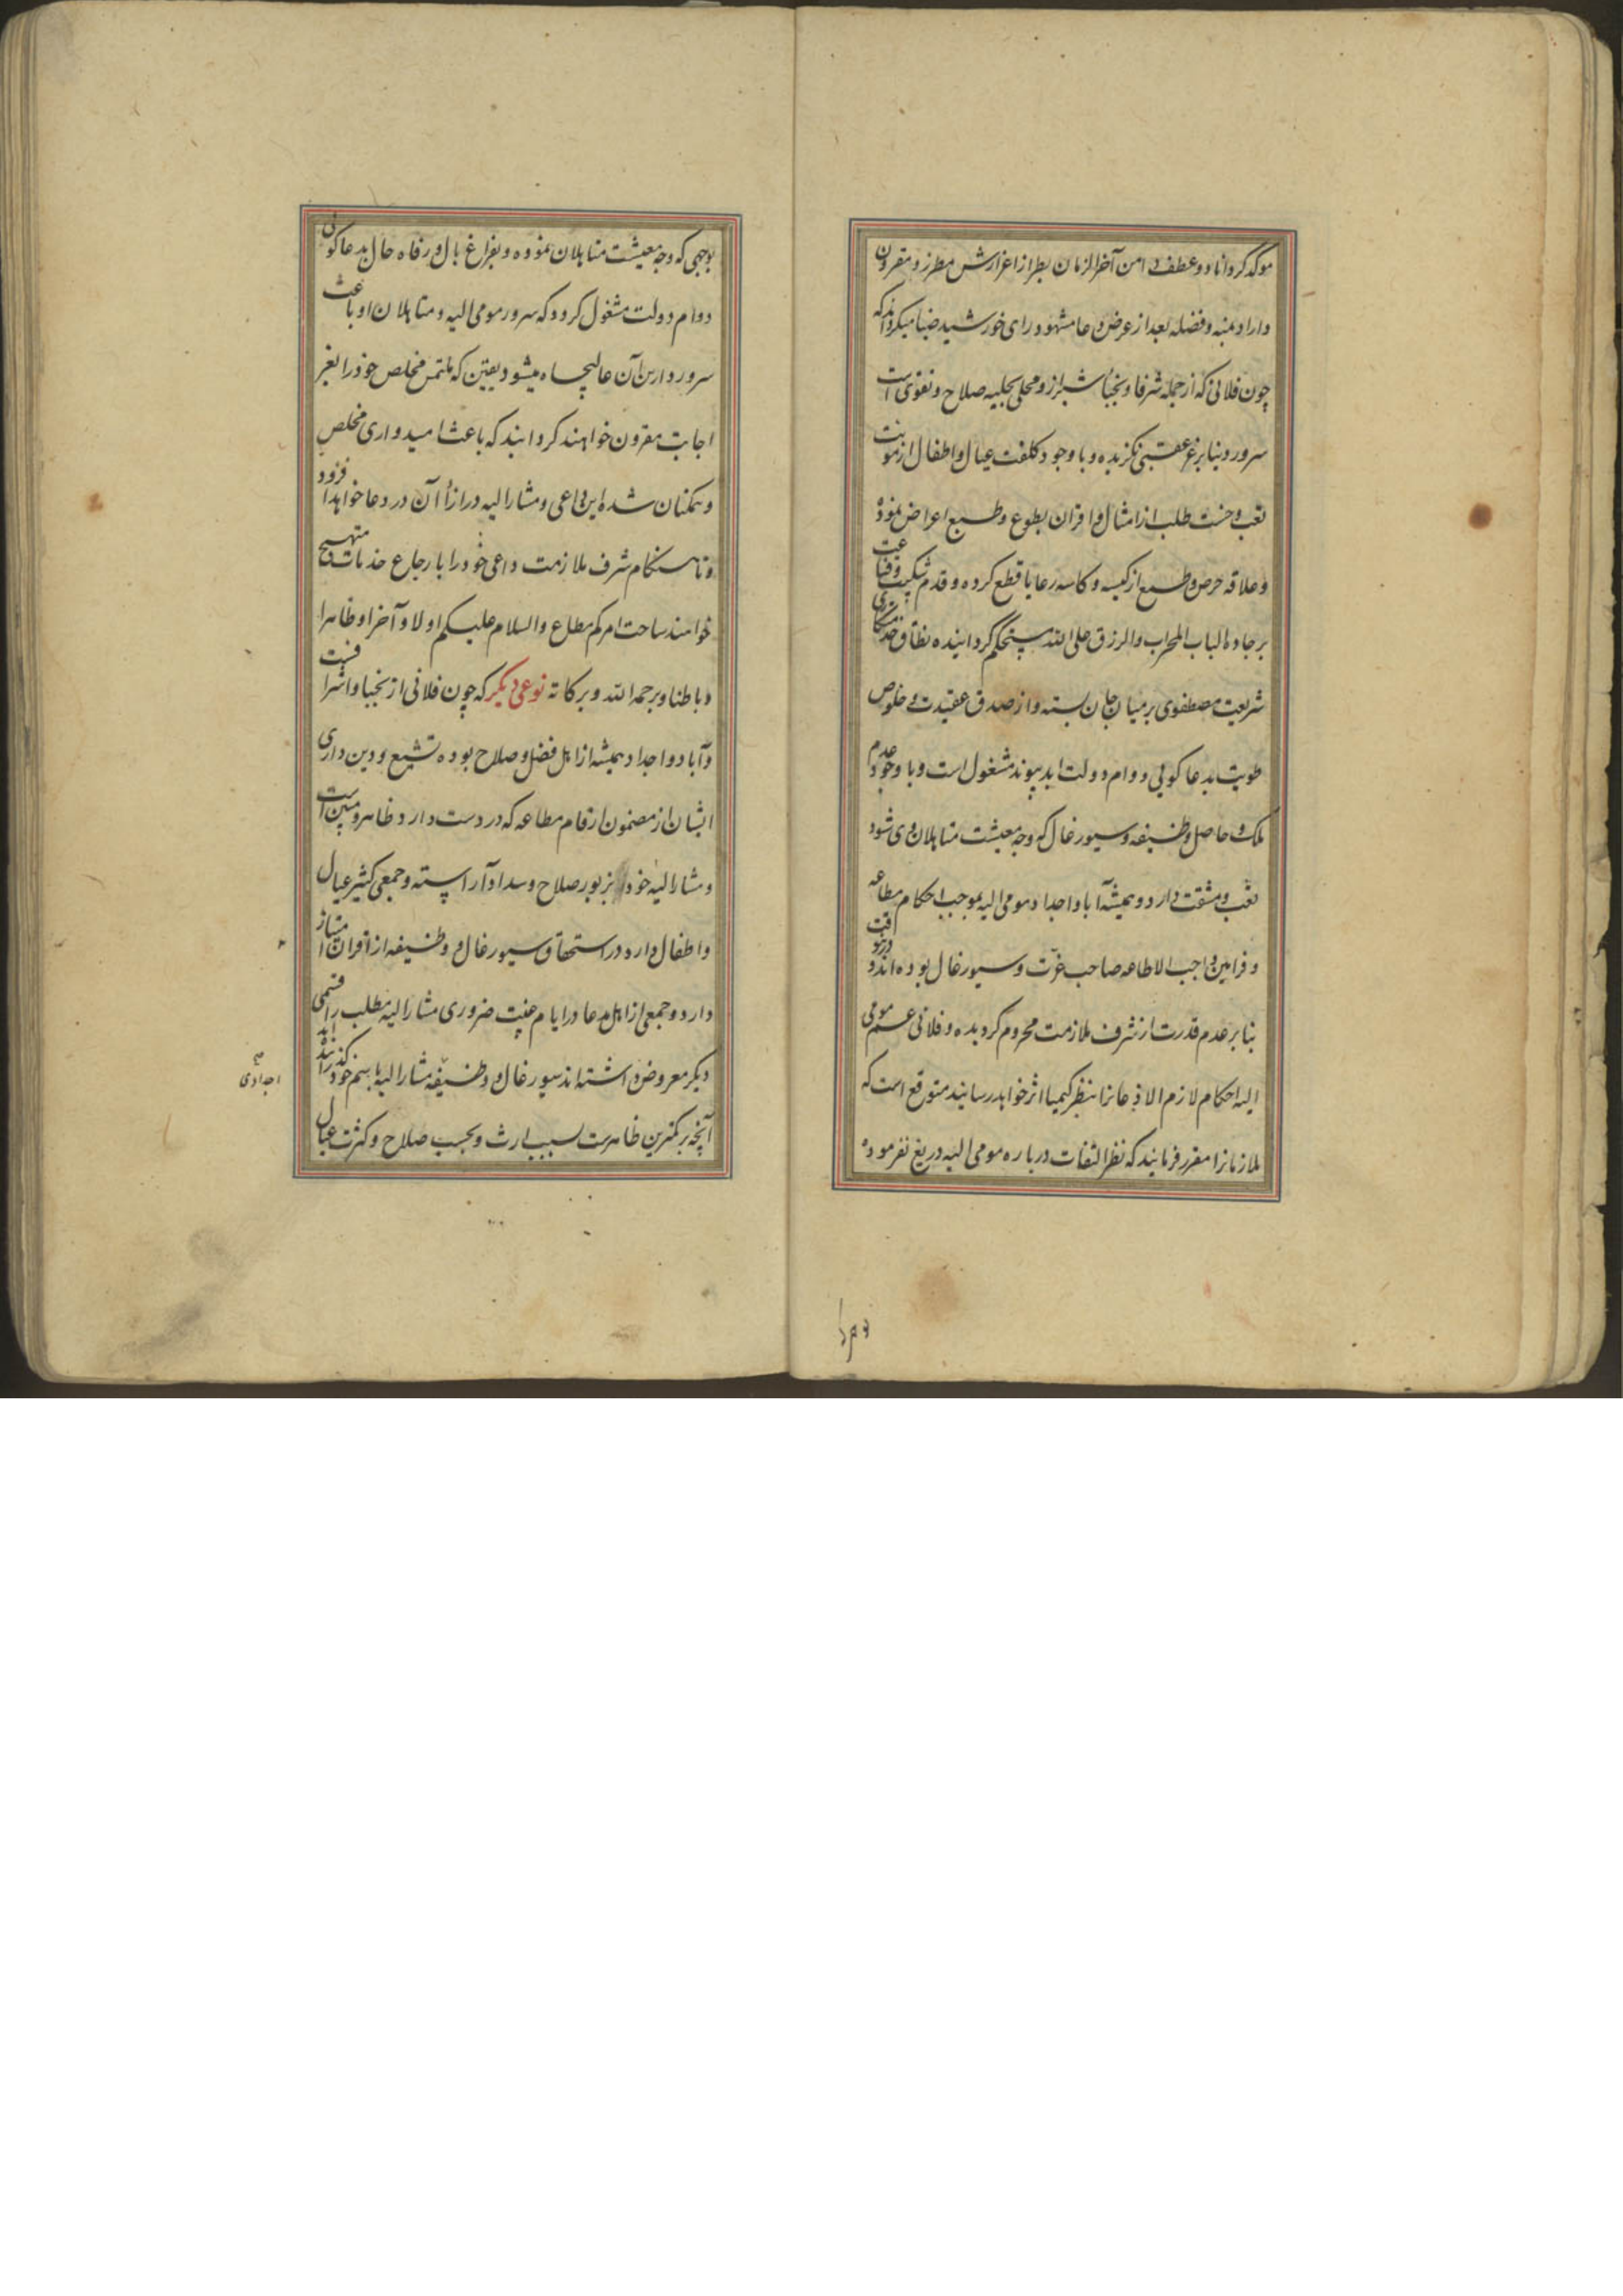 موکد کرداناد و عطف دامن آخر الزمان بطراز اعزازش مطرز و مقرون
داراد بمنه و فضله بعد از عرض دعا مشهود رای خورشید ضیا میکرداند که
چون فلانی که از جمله شرفا و نجباء شیراز و محلی بحلیه صلاح و تقوی است
سرور دنیا بر غم عقبی نکزیده و با وجود کلفت عیال و اطفال از مونت
تعب و خست طلب از امثال و اقران بطوع و طبع اعراض نموده
و علاقه حرص و طمع از کیسه و کاسه رعایا قطع کرده و قدم شکیب و قناعت
بر جاده الباب المحراب والرزق علی الله مستحکم کردانیده نطاق خدمتکاری
شریعت مصطفوی بر میان جان بسته و از صدق عقیدت و خلوص
طویت بدعا کویی دوام دولت ابد پیوند مشغول است و با وجود عدم
ملک و حاصل وظیفه و سیورغال که وجه معیشت متاهلان وی شود
تعب و مشقت دارد و همیشه آبا و اجداد مومی الیه بموجب احکام مطاعه
و فرامین واجب الاطاعه صاحب عزت و سیورغال بوده‌اند و درینوقت
بنا بر عدم قدرت از شرف ملازمت محروم کردیده و فلانی عم مومی
الیه احکام لازم الاذعانرا بنظر کیمیا اثر خواهد رسانید متوقع است که
ملازمانرا مقرر فرمایند که نظر التفات درباره مومی الیه دریغ نفرموده
بوجهی که وجه معیشت متاهلان نموده و بفراغ بال و رفاه حال بدعا کوئی
دوام دولت مشغول کردد که سرور مومی الیه و متاهلان او باعث
سرور دارین آن عالیجاه میشود یقین که ملتمس مخلص خود را بعز
اجابت مقرون خواهند کردانید که باعث امیدواری مخلص
و همکنان شده این داعی و مشار الیه در ازاء آن در دعا خواهد افزود
و تا هنکام شرف ملازمت داعی خود را بارجاع خدمات مبتهج
خوامند ساحت امرکم مطاع والسلام علیکم اولا و آخرا و ظاهرا
و باطنا و برحمه الله و برکاته نوعی دیکر که چون فلانی از نجبا و اشرافست
و آبا و اجداد همیشه از اهل فضل و صلاح بوده تشیع و دین داری
ایشان از مضمون ارقام مطاعه که در دست دارد ظاهر و مبین است
و مشار الیه خود بزیور صلاح و سداد آراسته و جمعی کثیر عیال
و اطفال دارد در استحقاق سیورغال و وظیفه از اقران امتیاز
دارد و جمعی از اهل مدعا در ایام غیبت ضروری مشار الیه مطلب را قسمی
دیکر معروض داشته‌اند سیورغال و وظیفه مشار الیه باسم خود کذرانیده‌اند
آنچه بر کمترین ظاهرست بسبب ارث و بحسب صلاح و کثرت عیال
اجدادی